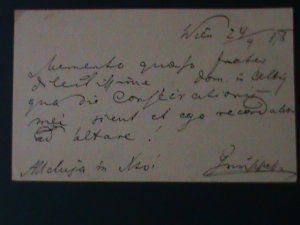 Wien 24/9 
Memento quaeso frater
dilectissime dom. in
qua die Consecrationis
mei sicut et ego recordabor
ad altare!
Alleluja in